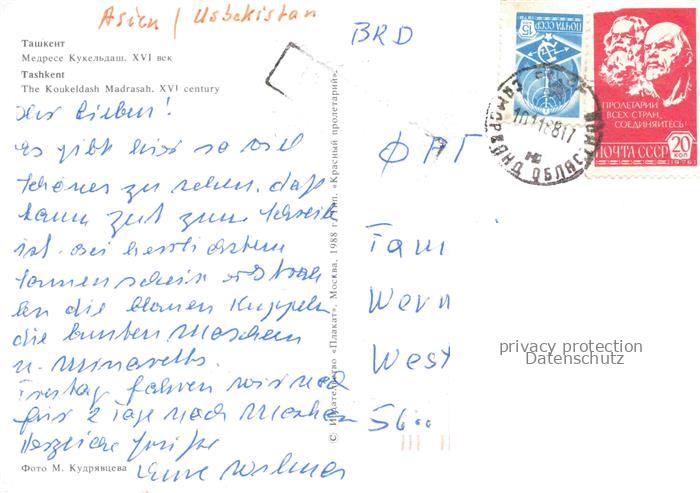 Asien / Usbekistan
Ташкент
Медресе Кукельдаш. XVI век
Tashkent
The Koukeldash Madrasah. XVI century
Ihr Lieben!
Es gibt hier so viel
Schönes zu sehen, daß
kaum Zeit zum Schreiben
ist. Bei herrlichstem
Sonnenschein erstrah-
len die blauen Kuppeln
die bunten Moscheen
u. Minaretts.
Freitag fahren wir noch
für 2 Tage nach Moskau
Herzliche Grüße
Eure
Фото М. Кудрявцева
© Издательство «Плакат», Москва, 1988 г. Тип. «Красный пролетарий».
BRD
ФРГ
Fam
Wern
West
5600
ПОЧТА СССР
15
ПРОЛЕТАРИИ
ВСЕХ СТРАН,
СОЕДИНЯЙТЕСЬ!
ПОЧТА СССР 20 КОП
1976
privacy protection
Datenschutz